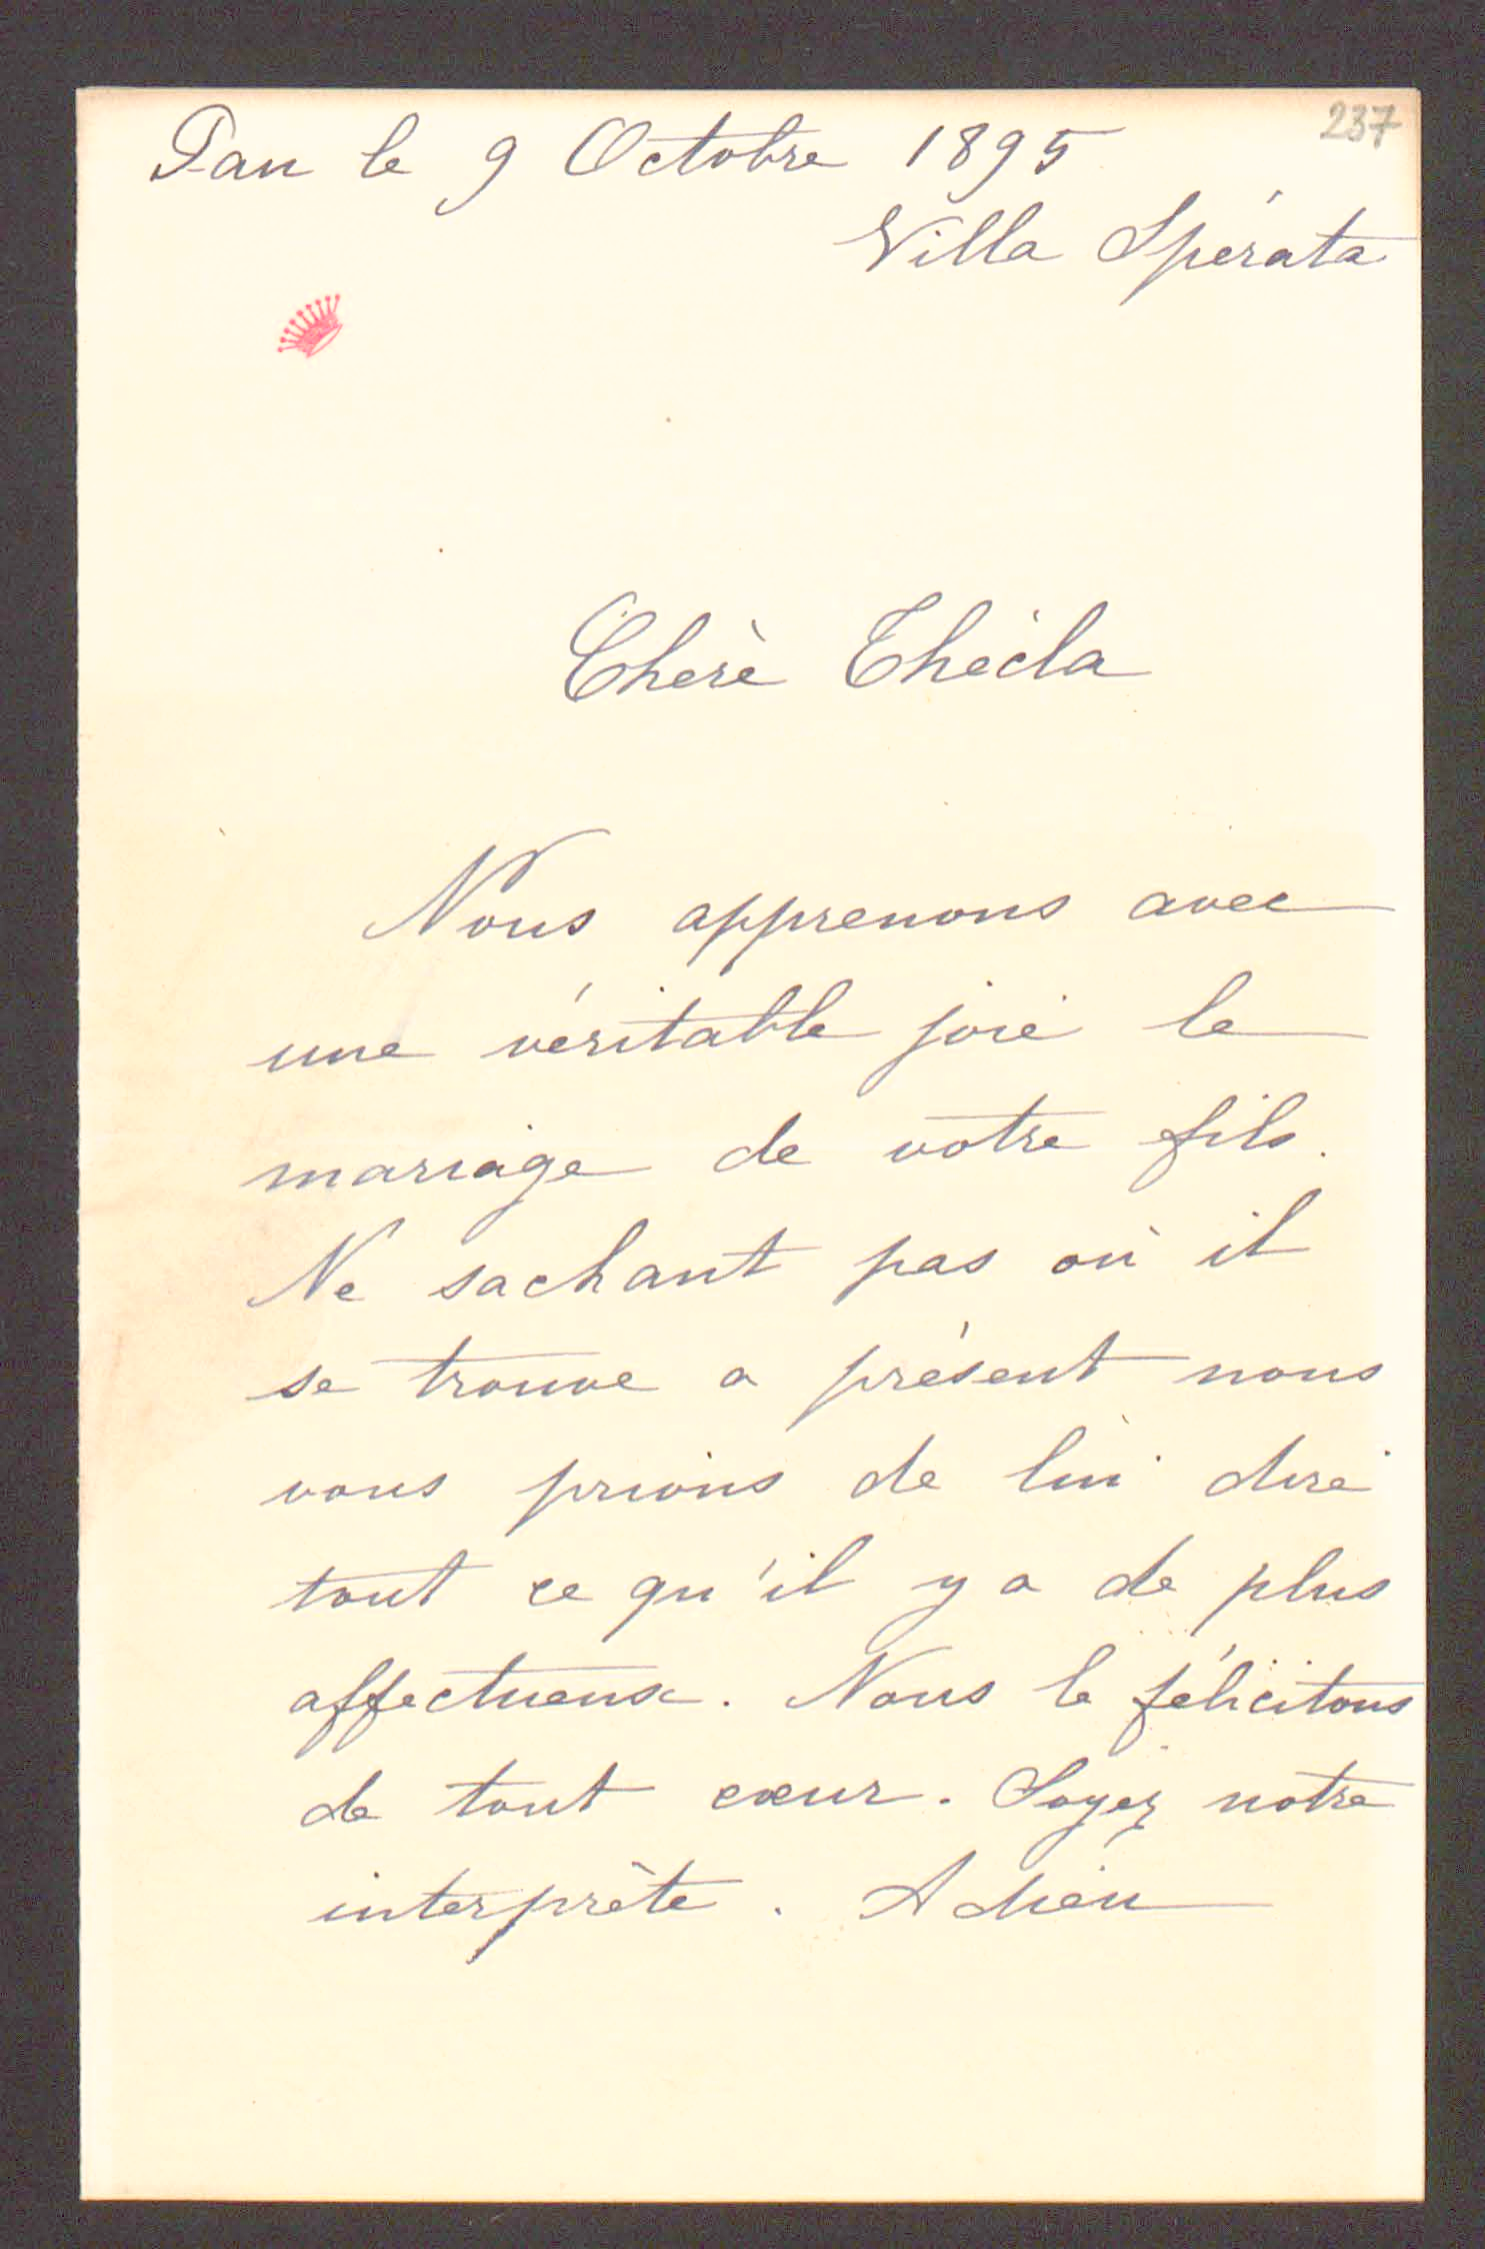 237
Pau le 9 Octobre 1895
Villa Spérata
Chère Thécla
Nous apprenons avec
une véritable joie le
mariage de votre fils.
Ne sachant pas où il
se trouve a présent nous
vous prions de lui dire
tout ce qu'il y a de plus
affectueux. Nous le félicitons
de tout cœur. Soyez notre
interprète. Adieu